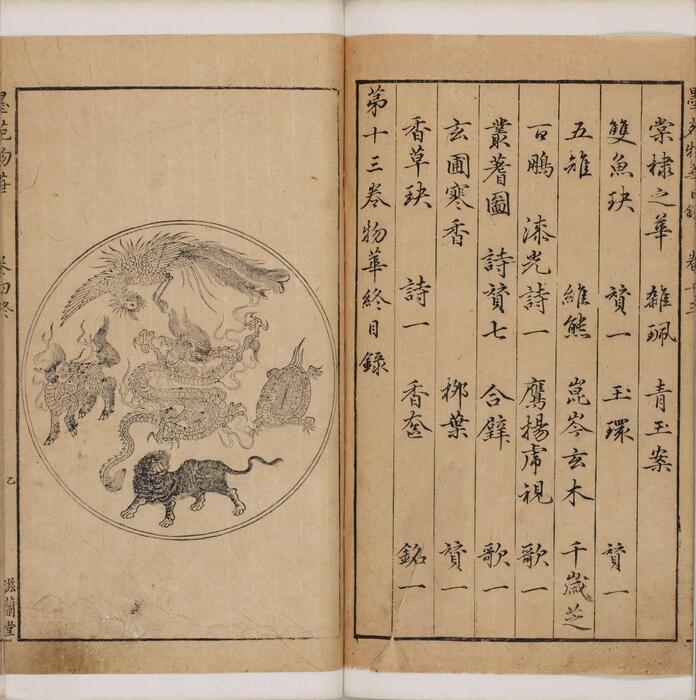 棠棣之華 雜珮 青玉案
雙魚玦 賛一 玉環 賛一
五雉 維熊 崑岑玄木 千歲芝
百鵬 漆光詩一 鷹揚虎視 歌一
叢蓍圖 詩賛七 合璧 歌一
玄圃寒香 柳葉 賛一
香草玦 詩一 香奩 銘一
第十三卷物華終目錄
墨苑物華 卷四終 乙 滋蘭堂